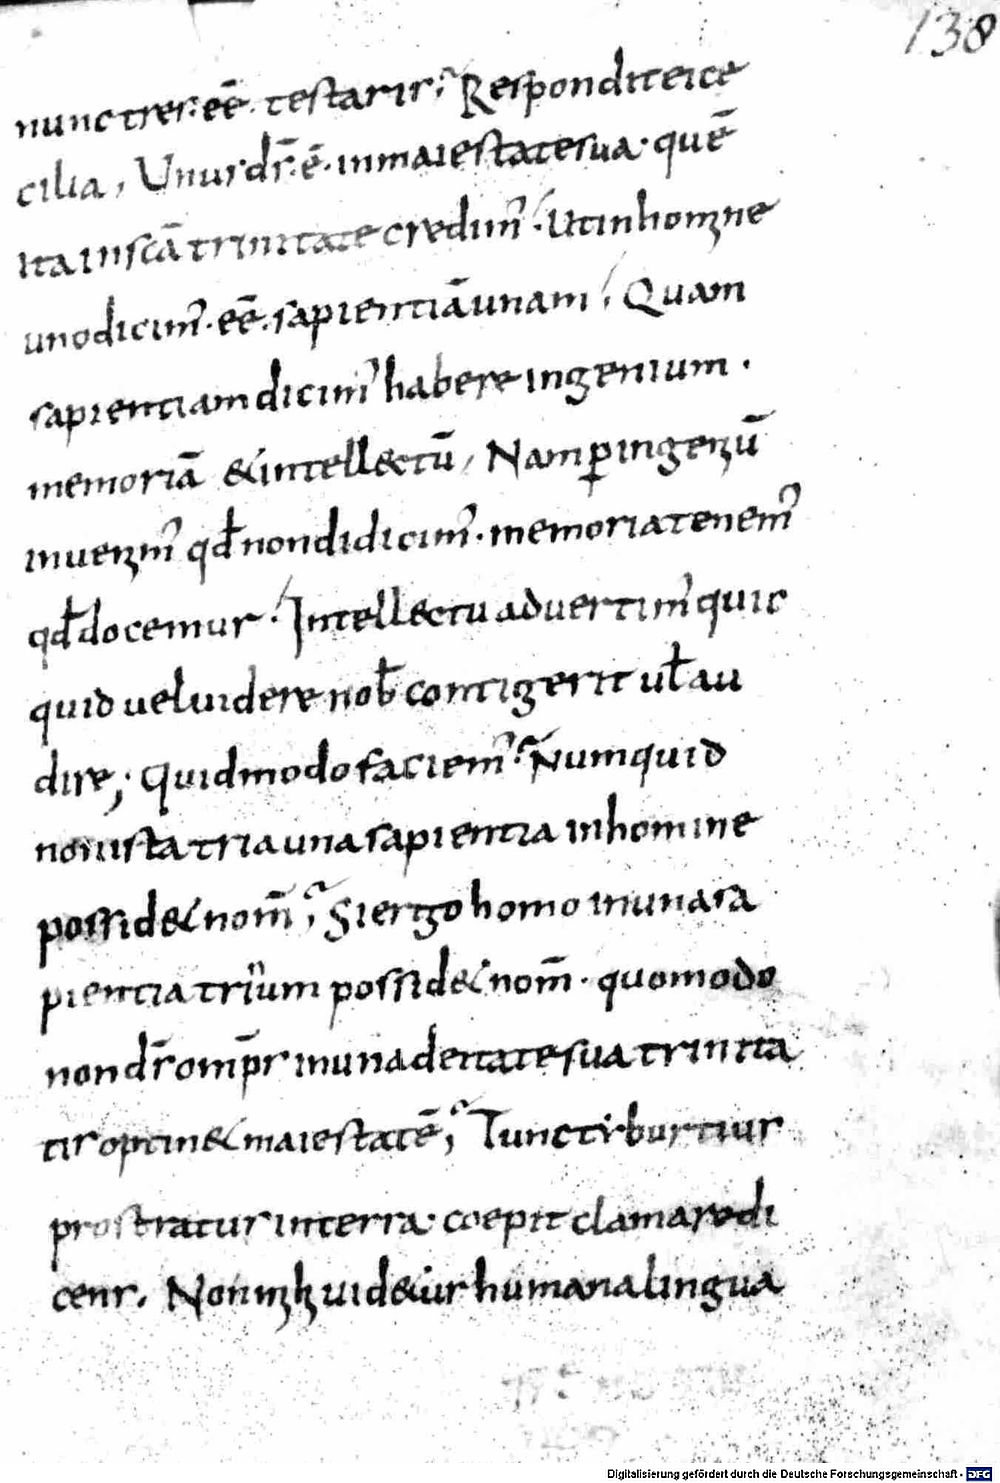 138
nunc tres· eē· testaris; Respondit ei ce
cilia, Unus dr̄· ē· in maiestate sua· quē
ita in scā trinitate credim᾽· Ut in homine
uno dicim᾽· eē· sapientiā unam; Quam
sapientiam dicim᾽ habere ingenium·
memoriā & intellectū, Nam ꝑ ingeniū
inuenim᾽ qđ non didicim᾽· memoria tenem᾽
qđ docemur· Intellectu aduertim᾽ quic
quid uel uidere nob̄ contigerit ul̄ au
dire; Quid modo faciem᾽? Numquid
non ista tria una sapientia in homine
possid& nom̄; Si ergo homo in una sa
pientia trium possid& nom̄· quomodo
non dr̄ omp̄s in una deitate sua trinita
tis optin& maiestatē; Tunc tiburtius
prostratus in terra· coepit clamare di
cens. Non m ħ uid&ur humana lingua
Digitalisierung gefördert durch die Deutsche Forschungsgemeinschaft - DFG